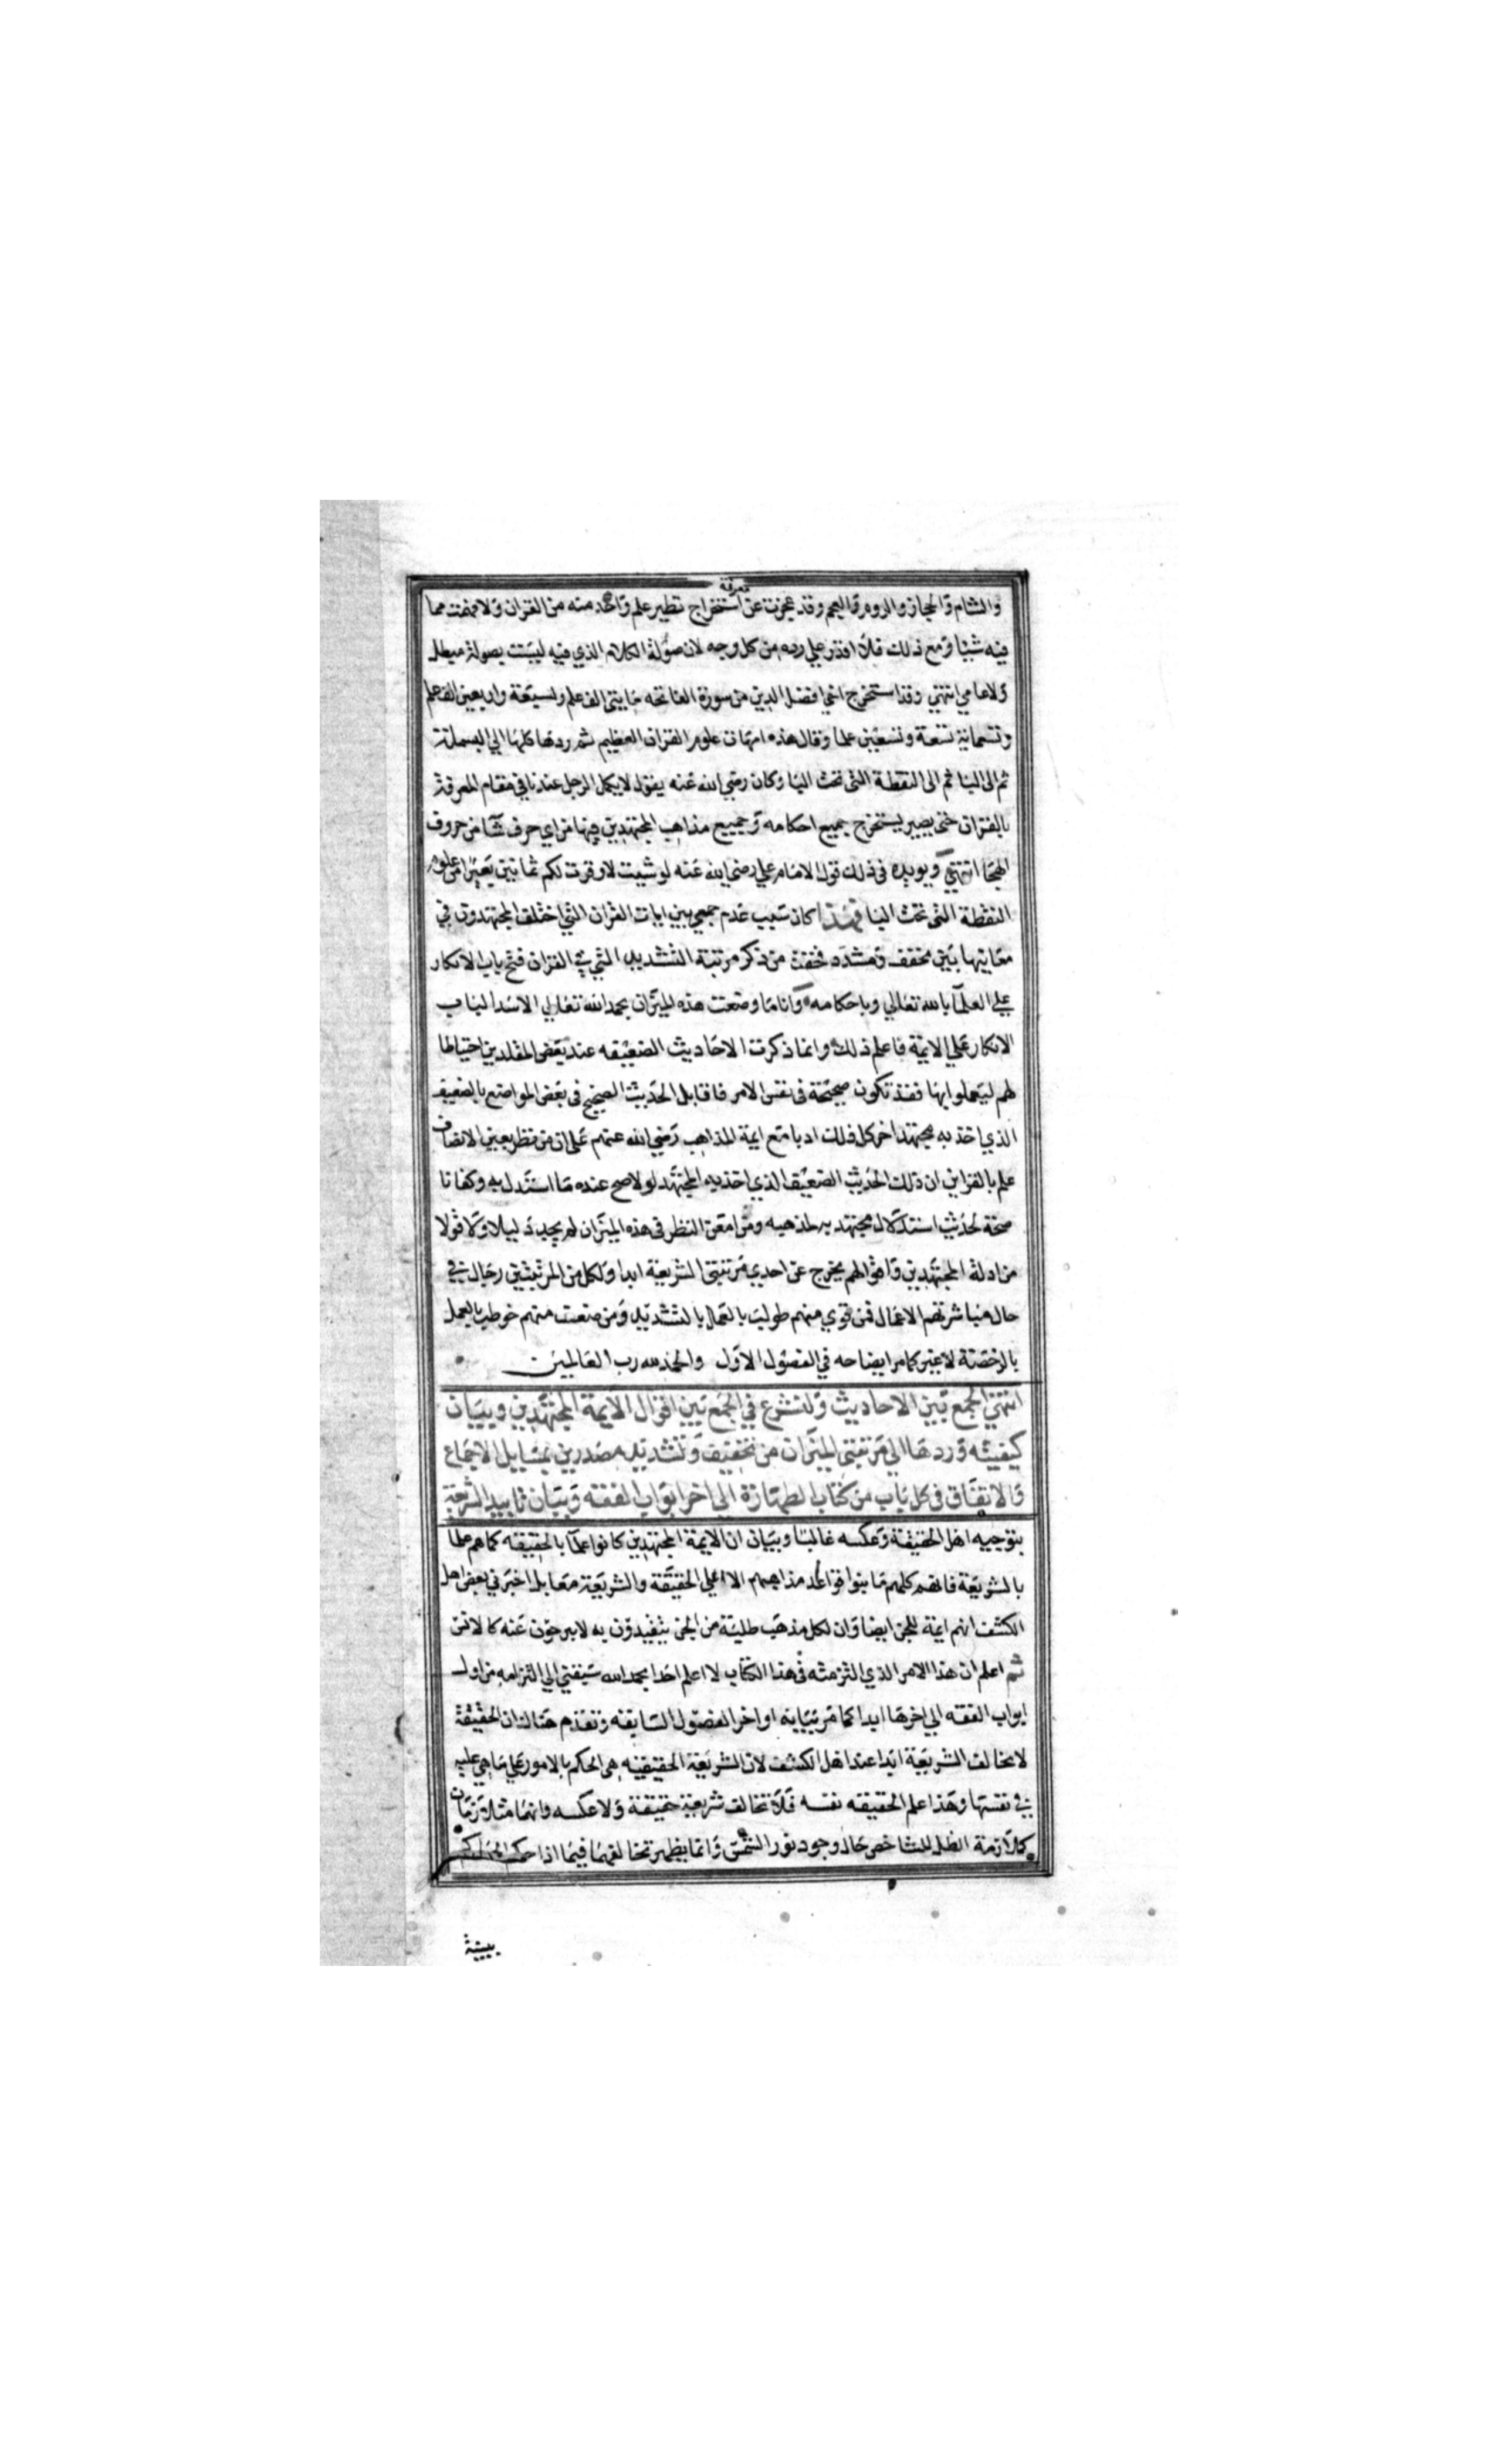 معرفة
والشام والحجاز والروم والعجم وقد عجزت عن استخراج نظير علم واحد منه من القران ولا فهمت مما
فيه شيئا ومع ذلك فلا اقدر علي رده من كل وجه لان صولة الكلام الذي فيه ليست بصولة مبطل
ولا عامي انتهي وقد استخرج اخي افضل الدين من سورة الفاتحه مايتي الف علم وسبعة واربعين الف علم
وتسعماية تسعة وتسعين علما وقال هذه امهات علوم القران العظيم ثم ردها كلها الي البسملة
ثم الى البا ثم الى النقطة التي تحت البا وكان رضي الله عنه يقول لا يكمل الرجل عندنا في مقام المعرفة
بالقران حتى يصير يستخرج جميع احكامه وجميع مذاهب المجتهدين فيها من اي حرف شآ من حروف
الهجا انتهي ويويده في ذلك قول الامام علي رضي الله عنه لو شيت لاوقرت لكم ثمانين بعيرا من علوم
النقطة التي تحت البا فهذا كان سبب عدم جمعي بين ايات القران التي اختلف المجتهدون في
معانيها بين مخفف ومشدد فخفت من ذكر مرتبة التشديد التي في القران فتح باب الانكار
علي العلمآ بالله تعالي وباحكامه وانا ما وضعت هذه الميزان بحمد الله تعالي الا سدا لباب
الانكار علي الايمة فاعلم ذلك وانما ذكرت الاحاديث الضعيفه عند بعض المقلدين احتياطا
لهم ليعملوا بها فقد تكون صحيحة في نفس الامر فاقابل الحديث الصحيح في بعض المواضع بالضعيف
الذي اخذ به مجتهد اخر كل ذلك ادبا مع ايمة المذاهب رضي الله عنهم علي ان من نظر بعين الانصاف
علم بالقراين ان ذلك الحديث الضعيف الذي اخذ به المجتهد لولا صح عنده ما استدل به وكفانا
صحة لحديث استدلال مجتهد به لمذهبه ومن امعن النظر في هذه الميزان لم يجد دليلا ولا قولا
من ادلة المجتهدين واقوالهم يخرج عن احدي مرتبتي الشريعة ابدا ولكل من المرتبتين رجال في
حال مباشرتهم الاعمال فمن قوي منهم طولب بالعمل بالتشديد ومن ضعف منهم خوطب بالعمل
بالرخصة لا غير كما مر ايضاحه في الفصول الاول والحمد لله رب العالمين
انتهي الجمع بين الاحاديث ولنشرع في الجمع بين اقوال الايمة المجتهدين وبيان
كيفيته وردها الي مرتبتي الميزان من تخفيف وتشديد مصدرين بمسايل الاجماع
والاتفاق في كل باب من كتاب الطهارة الي اخر ابواب الفقه وبيان تاييد الشريعة
بتوجيه اهل الحقيقة وعكسه غالبا وبيان ان الايمة المجتهدين كانوا علمآ بالحقيقه كما هم علما
بالشريعة فانهم كلهم ما بنوا قواعد مذاهبهم الا علي الحقيقة والشريعة معا بل اخبرني بعض اهل
الكشف انهم ايمة للجن ايضا وان لكل مذهب طليبة من الجن يتقيدون به لا يبرحون عنه كالانس
ثم اعلم ان هذا الامر الذي التزمته في هذا الكتاب لا اعلم احدا بحمد الله سبقني الي التزامه من اول
ابواب الفقه الي اخرها ابدا كما مر بيانه اواخر الفصول السابقه وتقدم هناك ان الحقيقة
لا تخالف الشريعة ابدا عند اهل الكشف لان الشريعة الحقيقيه هي الحكم بالامور علي ما هي عليه
في نفسها وهذا علم الحقيقه نفسه فلا تخالف شريعة حقيقة ولا عكسه وانهما متلازمان
كملازمة الظل للشاخص حال وجود نور الشمس وانما يظهر تخالفهما فيما اذا حكم الحاكم
ببينة